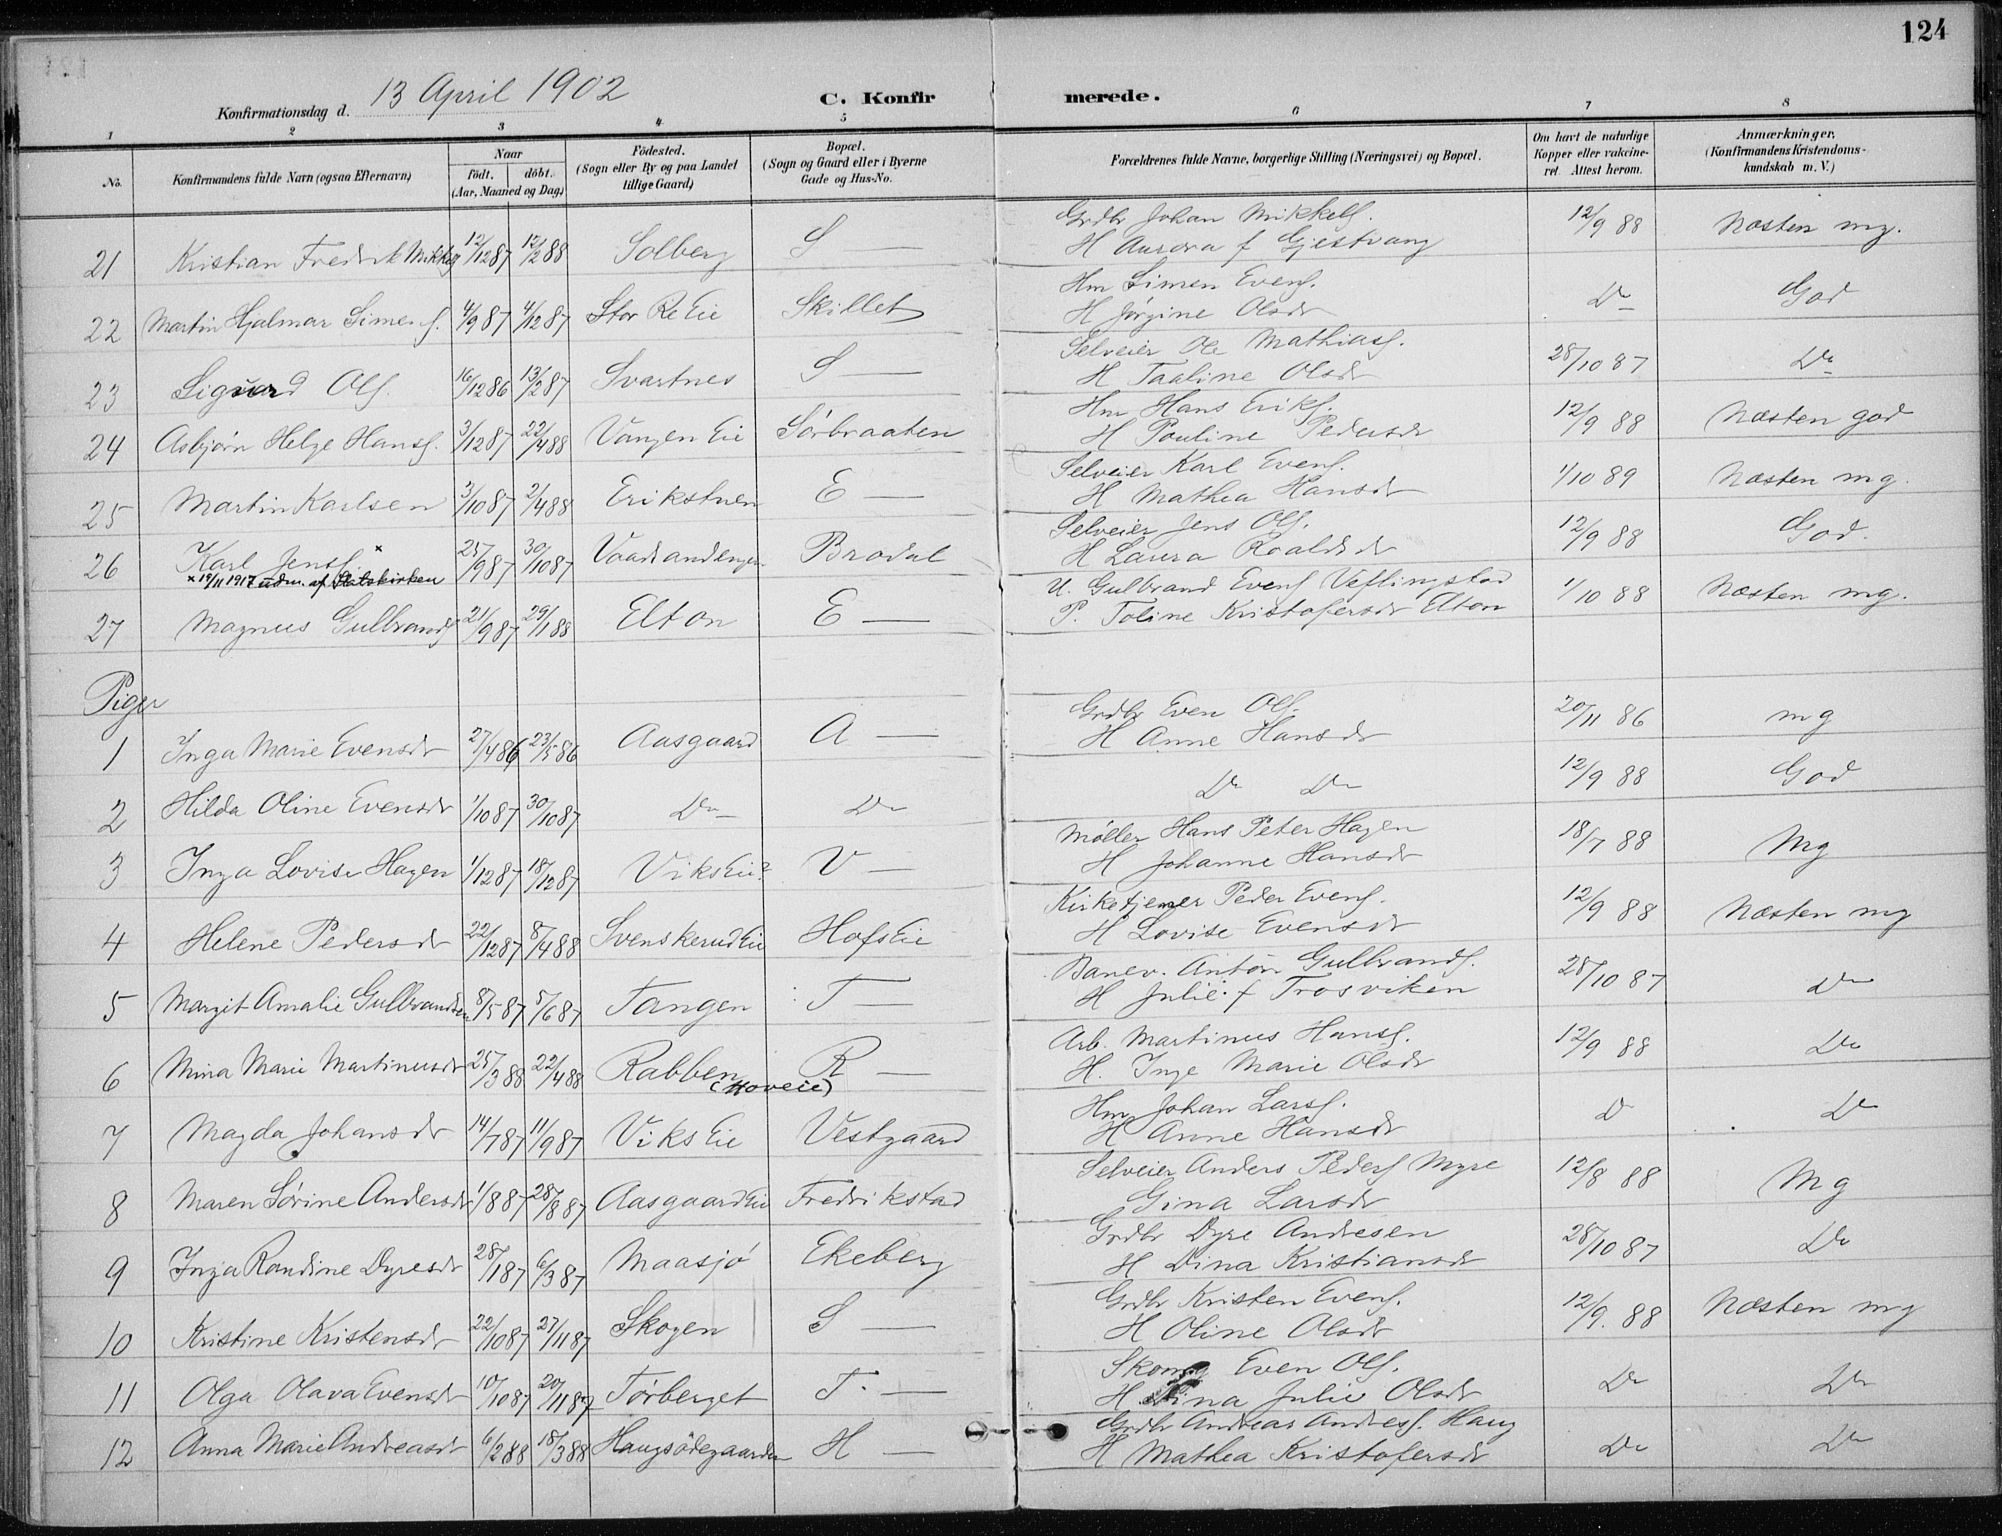 124
Konfirmationsdag d. 13 April 1902
C. Konfirmerede.
1 2 3 4 5 6 7 8
No.
Konfirmandens fulde Navn (ogsaa Efternavn)
Naar
födt. döbt.
(Aar, Maaned og Dag)
Födested.
(Sogn eller By og paa Landet
tillige Gaard)
Bopæl.
(Sogn og Gaard eller i Byerne
Gade og Hus-No.
Forældrenes fulde Navne, borgerlige Stilling (Næringsvei) og Bopæl.
Om havt de naturlige
Kopper eller vakcine-
ret. Attest herom.
Anmærkninger.
(Konfirmandens Kristendoms-
kundskab m. V.)
21 Kristian Fredrik Mikkels 12/12 87 12/2 88 Solberg S — Grdbr Johan Mikkels. 12/9 88 Næsten mg.
H Aurora f Gjestvang
22 Martin Hjalmar Simens. 4/9 87 4/12 87 Stor Re Eie Skillet Hm Simen Evens. Do God
H Jørgine Olsdr
23 Sigurd Ols. 16/12 86 13/2 87 Svartnes S — Selveier Ole Mathias. 28/10 87 Do
H Taaline Olsdr
24 Asbjørn Helge Hans. 3/12 87 22/4 88 Vangen Eie Sörbraaten Hm Hans Eriks. 12/9 88 Næsten god
H Pouline Pedersdr
25 Martin Karlsen 3/10 87 2/4 88 Erikstuen E — Selveier Karl Evens. 1/10 89 Næsten mg.
H Mathea Hansdr
26 Karl Jens. x 25/9 87 30/10 87 Brodal Selveier Jens Ols. 12/9 88 God.
x 19/11 1917 udm. af Statskirken H Laura Roaldsdr
27 Magnus Gulbrands 21/9 87 29/1 88 Elton E — U. Gulbrand Evens Veflingstad 1/10 88 Næsten mg.
P. Toline Kristofersdr Elton
Piger
1 Inga Marie Evensdr 27/4 86 23/5 86 Aasgaard A — Grdbr Even Ols. 20/11 86 mg
H Anne Hansdr
2 Hilda Oline Evensdr 1/10 87 30/10 87 Do Do Do Do 12/9 88 God
3 Inga Lovise Hagen 1/12 87 18/12 87 Viks Eie? V — Möller Hans Peter Hagen 18/7 88 Mg
H Johanne Hansdr
4 Helene Pedersdr 22/12 87 8/4 88 Svenskerud Eie Hofs Eie Kirketjener Peder Evens. 12/9 88 Næsten mg
H Lovise Evensdr
5 Margit Amalie Gulbrandsen 8/5 87 5/6 87 Tangen T — Banev. Anton Gulbrands. 28/10 87 Do
H Julie f Trosviken
6 Mina Marie Martinusdr 25/3 88 22/4 88 Rabben (Hoveie) R — Arb. Martinus Hans. 12/9 88 Do
H. Inge Marie Olsdr
7 Magda Johansdr 14/7 87 11/9 87 Viks Eie Vestgaard Hm Johan Lars. Do Do
H Anne Hansdr
8 Maren Sørine Andersdr 1/8 87 28/8 87 Aasgaard Eie Fredrikstad Selveier Anders Peders Myre 12/8 88 Mg
Gina Larsdr
9 Inga Randine Dyresdr 28/1 87 6/3 87 Maasjö Ekeberg Grdbr Dyre Andresen 28/10 87 Do
H Dina Kristiansdr
10 Kristine Kristensdr 22/10 87 27/11 87 Skogen S — Grdbr Kristen Evens. 12/9. 88 Næsten mg
H Oline Olsdr
11 Olga Olava Evensdr 10/10 87 20/11 87 Törberget T. — Even Ols. Do Do
H Dina Julie Olsdr
12 Anna Marie Andreasdr 6/2 88 18/3 88 Haugsödegaarden H — Grdbr Andreas Andres. Haug Do Do
H Mathea Kristofersdr